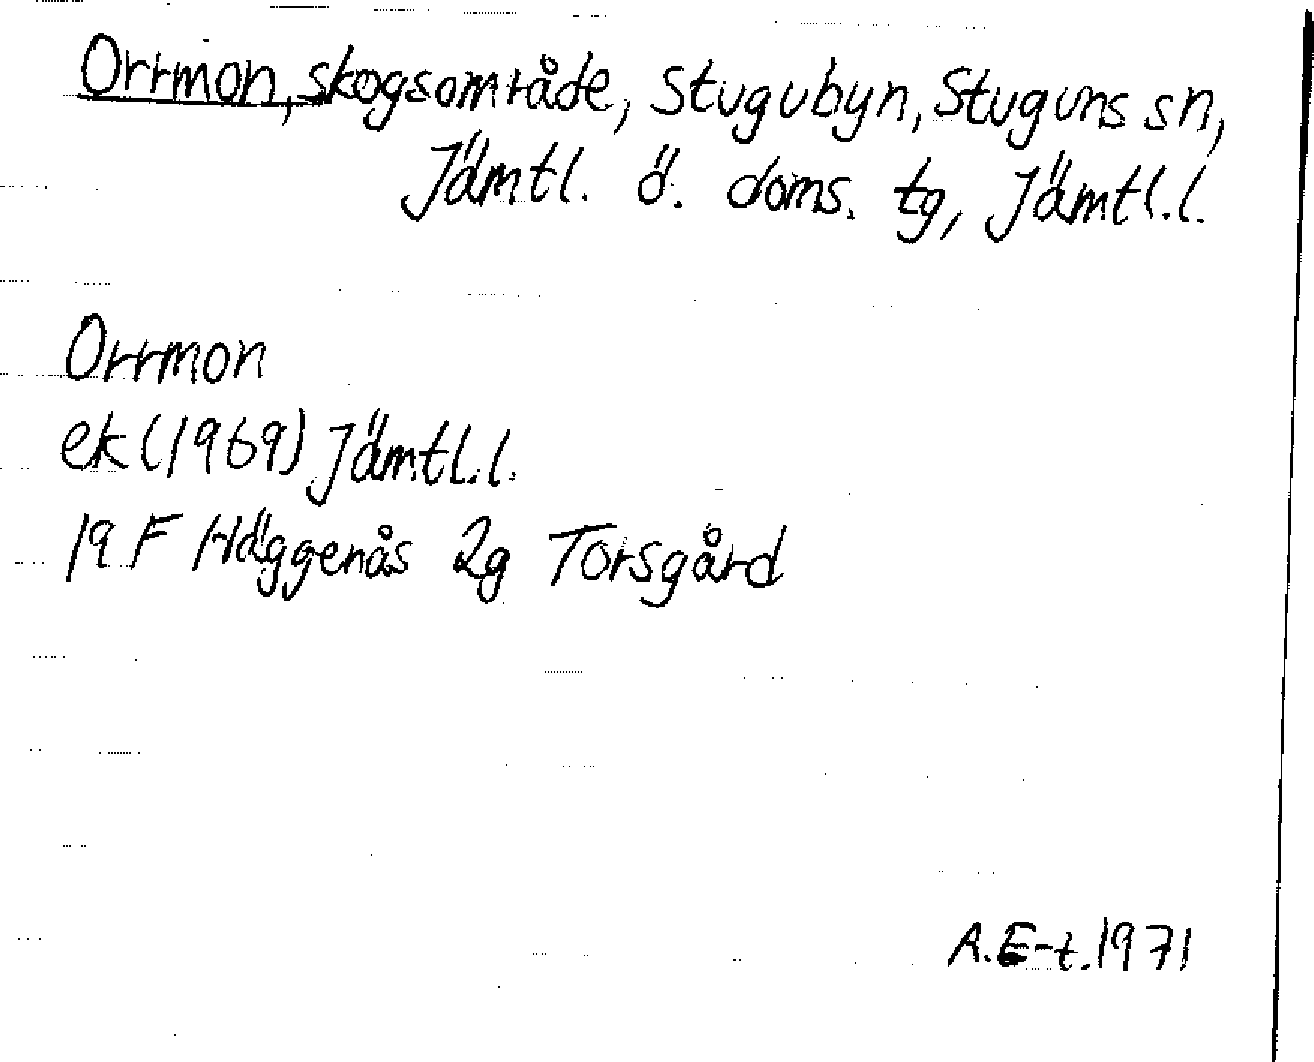 Orrmon, skogsområde, Stugubyn, Stuguns sn,
Jämtl. ö. doms. tg, Jämtl.l.
Orrmon
ek (1969) Jämtl.l.
19 F Häggenås 2g Torsgård
A.E-t.1971